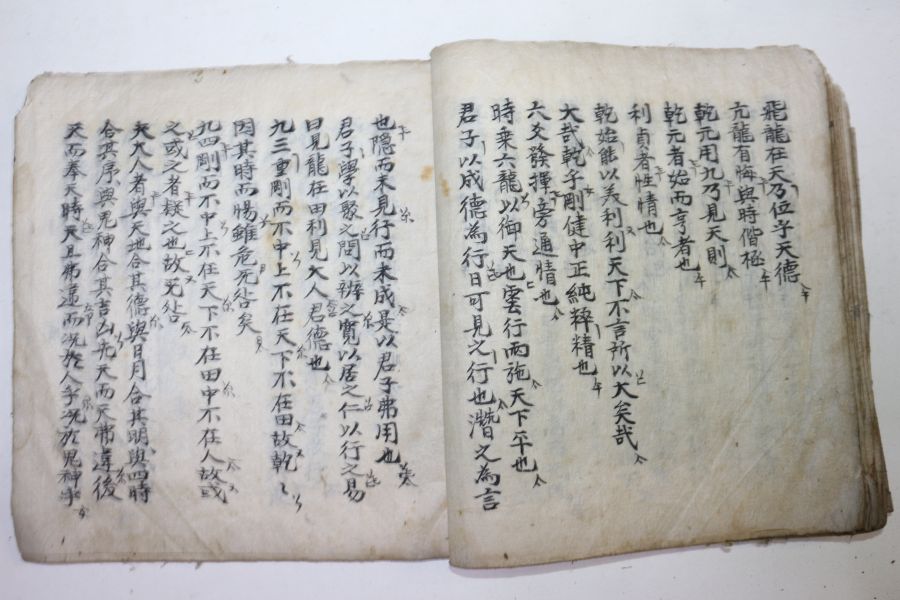 飛龍在天乃位乎天德
亢龍有悔與時偕極
乾元用九乃見天則
乾元者始而亨者也
利貞者性情也
乾始能以美利利天下不言所以大矣哉
大哉乾乎剛健中正純粹精也
六爻發揮旁通情也
時乘六龍以御天也雲行雨施天下平也
君子以成德為行日可見之行也潛之為言
也隱而未見行而未成是以君子弗用也
君子學以聚之問以辨之寬以居之仁以行之易
曰見龍在田利見大人君德也
九三重剛而不中上不在天下不在田故乾〻
因其時而惕雖危无咎矣
九四剛而不中上不在天下不在田中不在人故或
之或之者疑之也故无咎
夫大人者與天地合其德與日月合其明與四時
合其序與鬼神合其吉凶先天而天弗違後
天而奉天時天且弗違而況於人乎況於鬼神乎